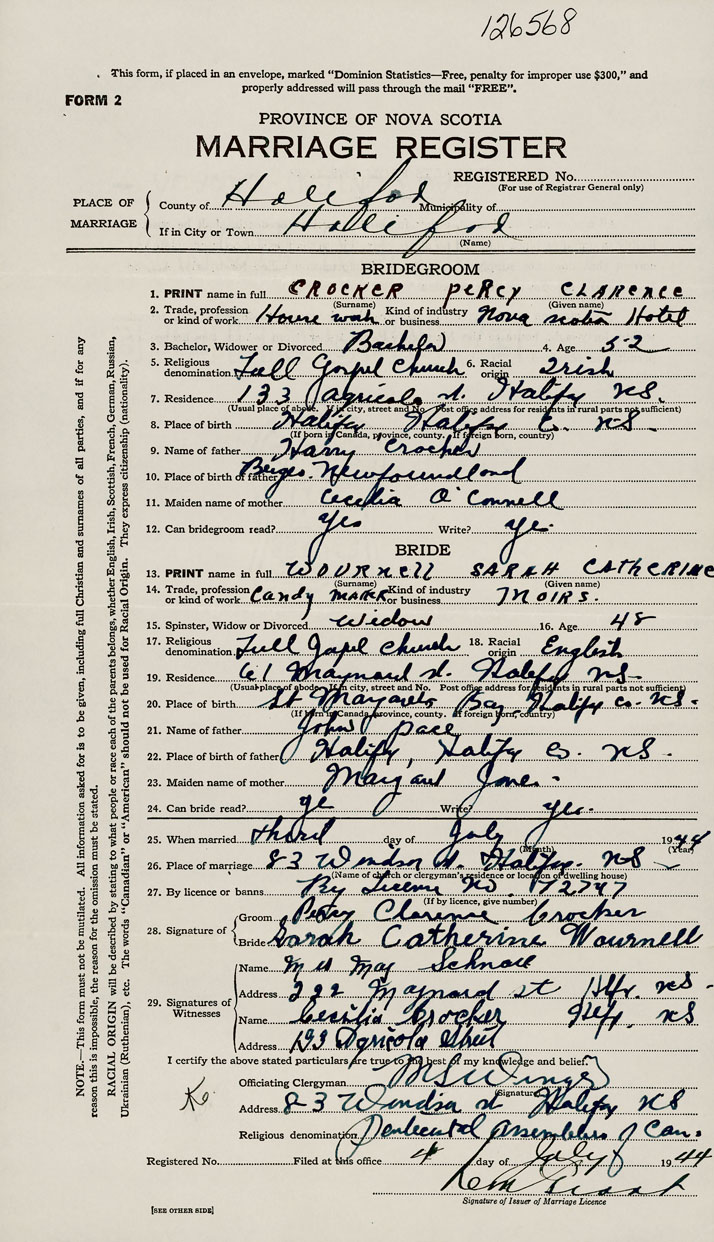 126568
This form, if placed in an envelope, marked "Dominion Statistics—Free, penalty for improper use $300," and
properly addressed will pass through the mail "FREE".
FORM 2
PROVINCE OF NOVA SCOTIA
MARRIAGE REGISTER
REGISTERED No.
(For use of Registrar General only)
PLACE OF MARRIAGE
County of Halifax Municipality of
If in City or Town Halifax
(Name)
BRIDEGROOM
1. PRINT name in full CROCKER PERCY CLARENCE
(Surname) (Given name)
2. Trade, profession or kind of work House Kind of industry or business Nova Scotia Hotel
3. Bachelor, Widower or Divorced Bachelor 4. Age 52
5. Religious denomination Full Gospel Church 6. Racial origin Irish
7. Residence 133 Agricola st. Halifax NS.
(Usual place of abode. If in city, street and No. Post office address for residents in rural parts not sufficient)
8. Place of birth Halifax Halifax Co. NS.
(If born in Canada, province, county. If foreign born, country)
9. Name of father Harry Crocker
10. Place of birth of father Newfoundland
11. Maiden name of mother Cecelia O'Connell
12. Can bridegroom read? Yes Write? ye.
BRIDE
13. PRINT name in full WOURNELL SARAH CATHERINE
(Surname) (Given name)
14. Trade, profession or kind of work Candy MAKER Kind of industry or business MOIRS.
15. Spinster, Widow or Divorced Widow 16. Age 48
17. Religious denomination Full Gospel Church 18. Racial origin English
19. Residence 61 Maynard st. Halifax NS.
(Usual place of abode. If in city, street and No. Post office address for residents in rural parts not sufficient)
20. Place of birth St Margarets Bay Halifax Co. NS.
(If born in Canada, province, county. If foreign born, country)
21. Name of father John Pace
22. Place of birth of father Halifax, Halifax Co. NS.
23. Maiden name of mother Margaret Jones
24. Can bride read? ye Write? yes.
25. When married third day of July 1944
(Month) (Year)
26. Place of marriage 83 Windsor st. Halifax. NS
(Name of church or clergyman's residence or location of dwelling house)
27. By licence or banns By License No. 72747
(If by licence, give number)
28. Signature of
Groom Percy Clarence Crocker
Bride Sarah Catherine Wournell
29. Signatures of Witnesses
Name May Schnare
Address 222 Maynard st Hfx. NS.
Name Cecilia Crocker Hfx. NS
Address 133 Agricola Street
I certify the above stated particulars are true to the best of my knowledge and belief.
Officiating Clergyman
(Signature)
Address 83 Windsor st Halifax NS
Religious denomination Pentecostal Assemblies of Can.
Registered No. Filed at this office 4 day of July 1944
Signature of Issuer of Marriage Licence
[SEE OTHER SIDE]
NOTE.—This form must not be mutilated. All information asked for is to be given, including full Christian and surnames of all parties, and if for any
reason this is impossible, the reason for the omission must be stated.
RACIAL ORIGIN will be described by stating to what people or race each of the parents belongs, whether English, Irish, Scottish, French, German, Russian,
Ukrainian (Ruthenian), etc. The words "Canadian" or "American" should not be used for Racial Origin. They express citizenship (nationality).